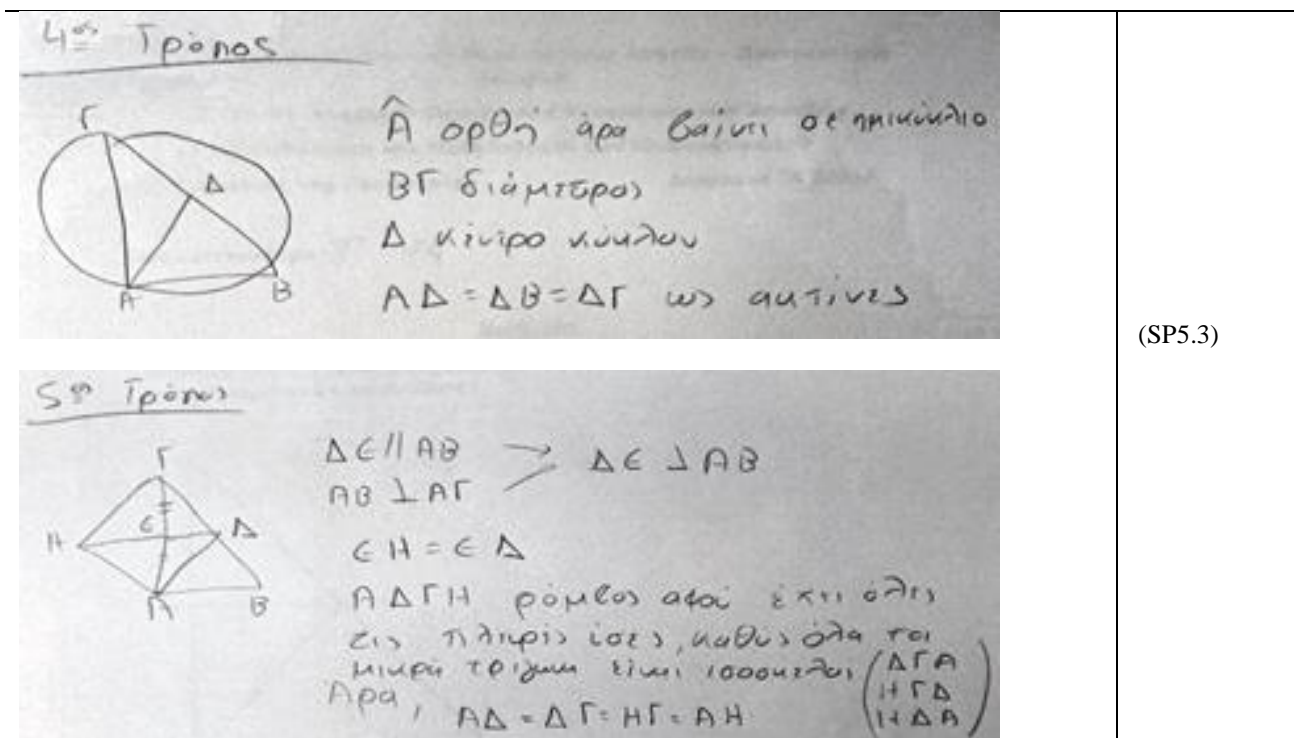 4ος Τρόπος
Γ
Δ
Α
Β
Â ορθή άρα βαίνει σε ημικύκλιο
ΒΓ διάμετρος
Δ κέντρο κύκλου
ΑΔ = ΔΒ = ΔΓ ως ακτίνες
(SP5.3)
5ος Τρόπος
Γ
Η
Ε
Δ
Α
Β
ΔΕ // ΑΒ
ΑΒ ⊥ ΑΓ
ΔΕ ⊥ ΑΒ
ΕΗ = ΕΔ
ΑΔΓΗ ρόμβος αφού έχει όλες
τις πλευρές ίσες, καθώς όλα τα
μικρά τρίγωνα είναι ισοσκελή (ΔΓΑ
ΗΓΔ
ΗΔΑ)
Άρα, ΑΔ = ΔΓ = ΗΓ = ΑΗ